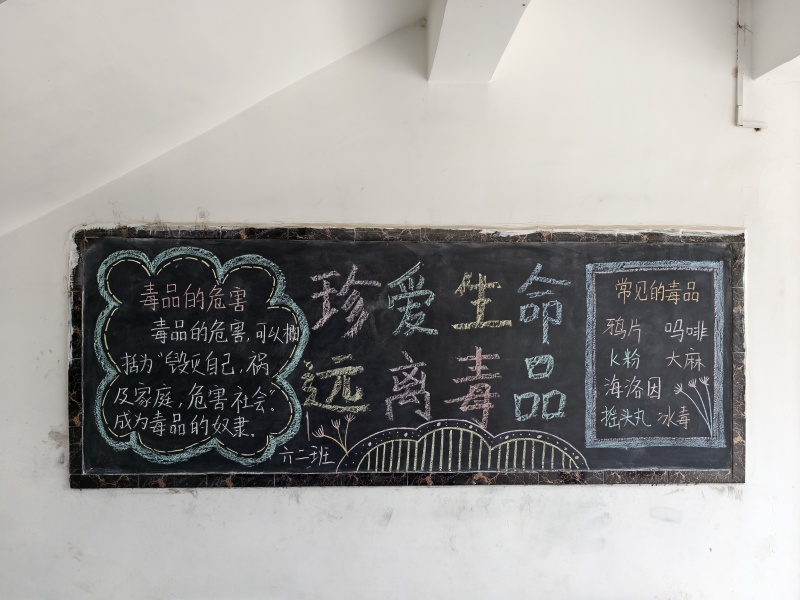 毒品的危害
毒品的危害,可以概
括为“毁灭自己,祸
及家庭,危害社会”。
成为毒品的奴隶。
珍爱生命
远离毒品
六二班
常见的毒品
鸦片 吗啡
K粉 大麻
海洛因
摇头丸 冰毒